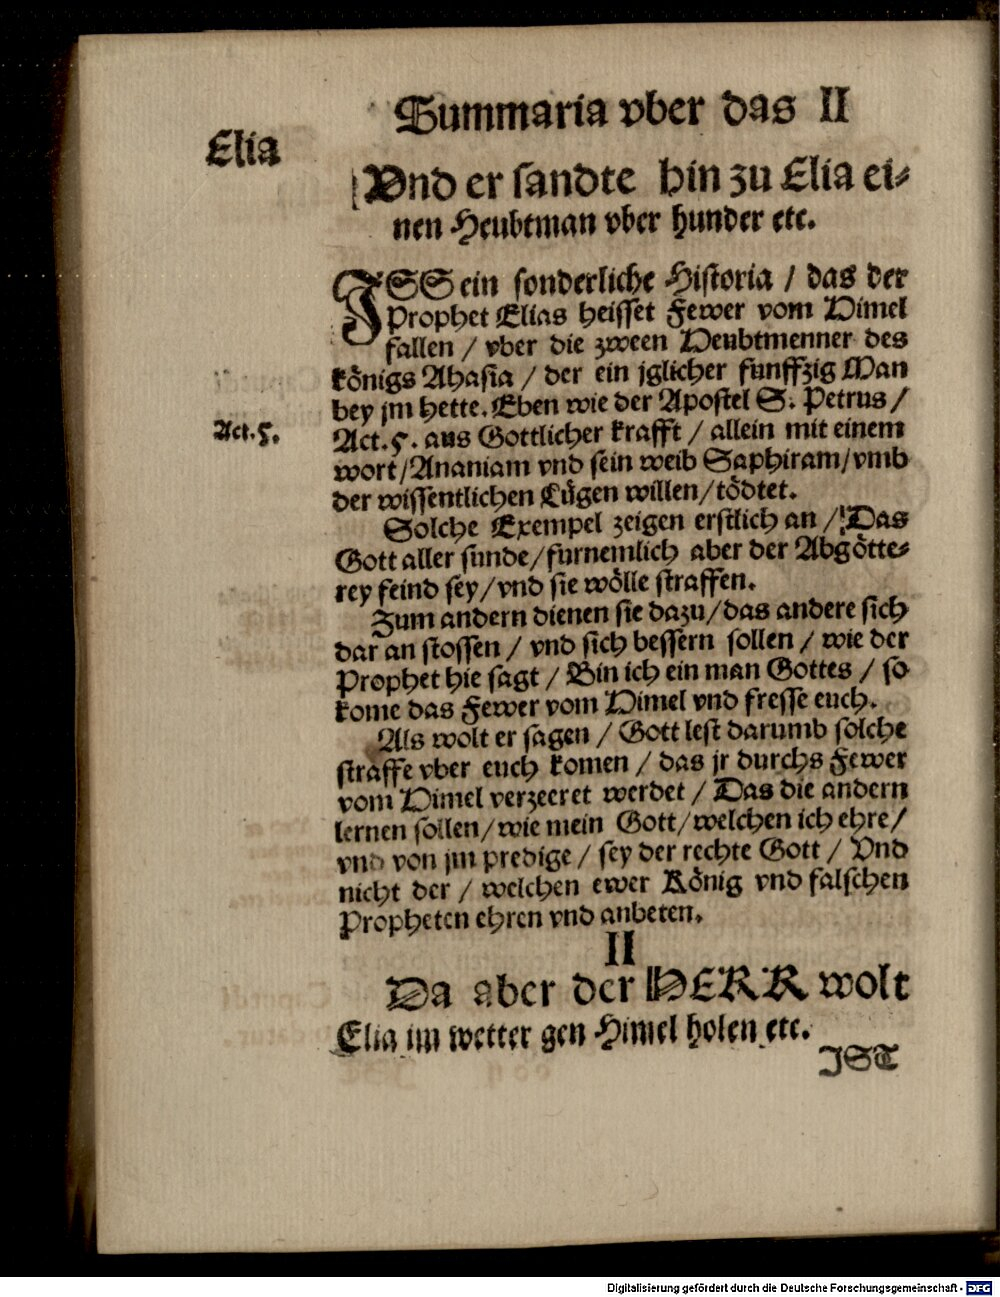 Summaria vber das II
Elia
Vnd er sandte hin zu Elia ei⸗
nen Heubtman vber hunder etc.
ISS ein sonderliche Historia / das der
Prophet Elias heisset Fewer vom Himel
fallen / vber die zween Heubtmenner des
königs Ahasia / der ein jglicher funffzig Man
bey jm hette. Eben wie der Apostel S. Petrus /
Act. 5.
Act. 5. aus Gottlicher krafft / allein mit einem
wort / Ananiam vnd sein weib Saphiram / vmb
der wissentlichen Lügen willen / tödtet.
Solche Exempel zeigen erstlich an / Das
Gott aller sunde / furnemlich aber der Abgötte⸗
rey feind sey / vnd sie wölle straffen.
Zum andern dienen sie dazu / das andere sich
dar an stossen / vnd sich bessern sollen / wie der
Prophet hie sagt / Bin ich ein man Gottes / so
kome das Fewer vom Himel vnd fresse euch.
Als wolt er sagen / Gott lest darumb solche
straffe vber euch komen / das jr durchs Fewer
vom Himel verzeeret werdet / Das die andern
lernen sollen / wie mein Gott / welchen ich ehre /
vnd von jm predige / sey der rechte Gott / Vnd
nicht der / welchen ewer König vnd falschen
Propheten ehren vnd anbeten.
II
Da aber der HERR wolt
Elia im wetter gen Himel holen etc.
IST
Digitalisierung gefördert durch die Deutsche Forschungsgemeinschaft - DFG